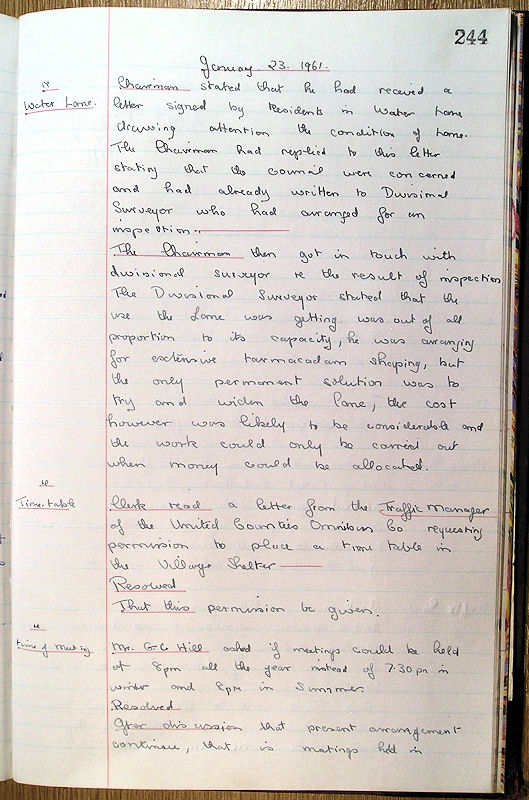 244
January 23. 1961.
re
Water Lane.
Chairman stated that he had received a
letter signed by Residents in Water Lane
drawing attention the condition of Lane.
The Chairman had replied to this letter
stating that the Council were concerned
and had already written to Divisional
Surveyor who had arranged for an
inspection.
The Chairman then got in touch with
divisional surveyor re the result of inspection
The Divisional Surveyor stated that the
use the Lane was getting was out of all
proportion to its capacity, he was arranging
for extensive tarmacadam shaping, but
the only permanent solution was to
try and widen the lane, the cost
however was likely to be considerable and
the work could only be carried out
when money could be allocated.
re
Time table
Clerk read a letter from the Traffic Manager
of the United Counties Omnibus Co requesting
permission to place a time table in
the Village Shelter
Resolved
That this permission be given.
re
time of meeting
Mr. G C Hill asked if meetings could be held
at 8pm all the year instead of 7.30pm in
winter and 8pm in Summer.
Resolved
After discussion that present arrangement
continue, that is meetings held in